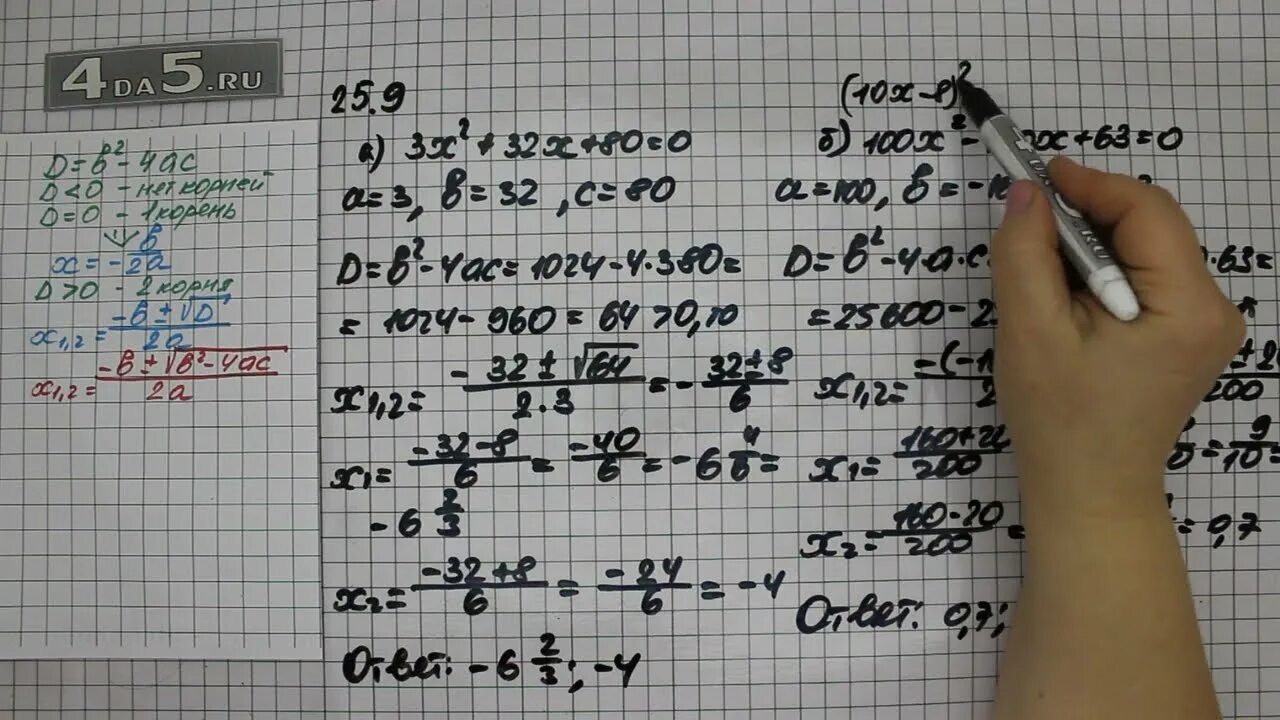 4DA5.RU
D=b²-4ac
D<0 - нет корней
D=0 - 1 корень
x=-b/2a
D>0 - 2 корня
x1,2=(-b±√D)/2a
x1,2=(-b±√b²-4ac)/2a
25.9
а) 3x²+32x+80=0
a=3, b=32, c=80
D=b²-4ac=1024-4·3·80=
=1024-960=64>0,
x1,2=(-32±√64)/(2·3)=-(32±8)/6
x1=(-32-8)/6=-40/6=-6 4/6=
-6 2/3
x2=(-32+8)/6=-24/6=-4
Ответ: -6 2/3; -4
(10x-8)²
б) 100x²- x+63=0
a=100, b=-1
D=b²-4·a·c ·63=
=25600-2
x1,2=-(-1 ±2 /200
x1= /200 =9/10=
x2=(160-20)/200= =0,7
Ответ: 0,7;
.RU